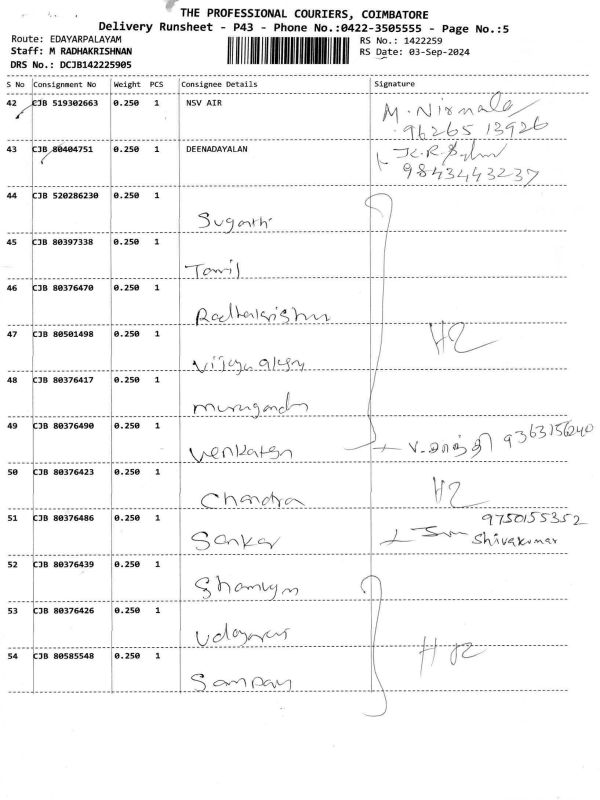 THE PROFESSIONAL COURIERS, COIMBATORE
Delivery Runsheet - P43 - Phone No.:0422-3505555 - Page No.:5
Route: EDAYARPALAYAM
RS No.: 1422259
Staff: M RADHAKRISHNAN
RS Date: 03-Sep-2024
DRS No.: DCJB142225905
S No Consignment No Weight PCS Consignee Details Signature
42 CJB 519302663 0.250 1 NSV AIR M. Nirmala
96265 13926
43 CJB 80404751 0.250 1 DEENADAYALAN
9843443237
44 CJB 520286230 0.250 1
Sugathi
45 CJB 80397338 0.250 1
Tamil
46 CJB 80376470 0.250 1
Radhakrishnn
47 CJB 80501498 0.250 1 H2
48 CJB 80376417 0.250 1
49 CJB 80376490 0.250 1 9363156240
Venkatsn
50 CJB 80376423 0.250 1 H2
Chandra
51 CJB 80376486 0.250 1 9750155352
Sankar Shivakumar
52 CJB 80376439 0.250 1
53 CJB 80376426 0.250 1
54 CJB 80585548 0.250 1
Sampan